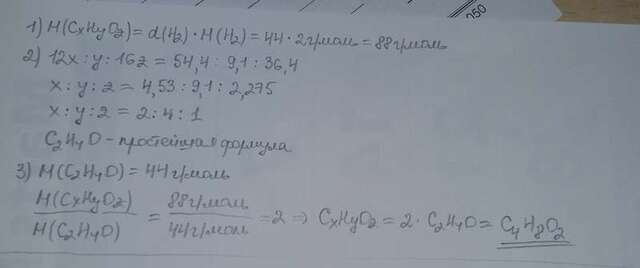 1) M(CxHyOz) = d(H2) · M(H2) = 44 · 2г/моль = 88г/моль
2) 12x : y : 16z = 54,4 : 9,1 : 36,4
x : y : z = 4,53 : 9,1 : 2,275
x : y : z = 2 : 4 : 1
C2H4O - простейшая формула
3) M(C2H4O) = 44г/моль
M(CxHyOz)/M(C2H4O) = 88г/моль/44г/моль = 2 ⇒ CxHyOz = 2 · C2H4O = C4H8O2
050